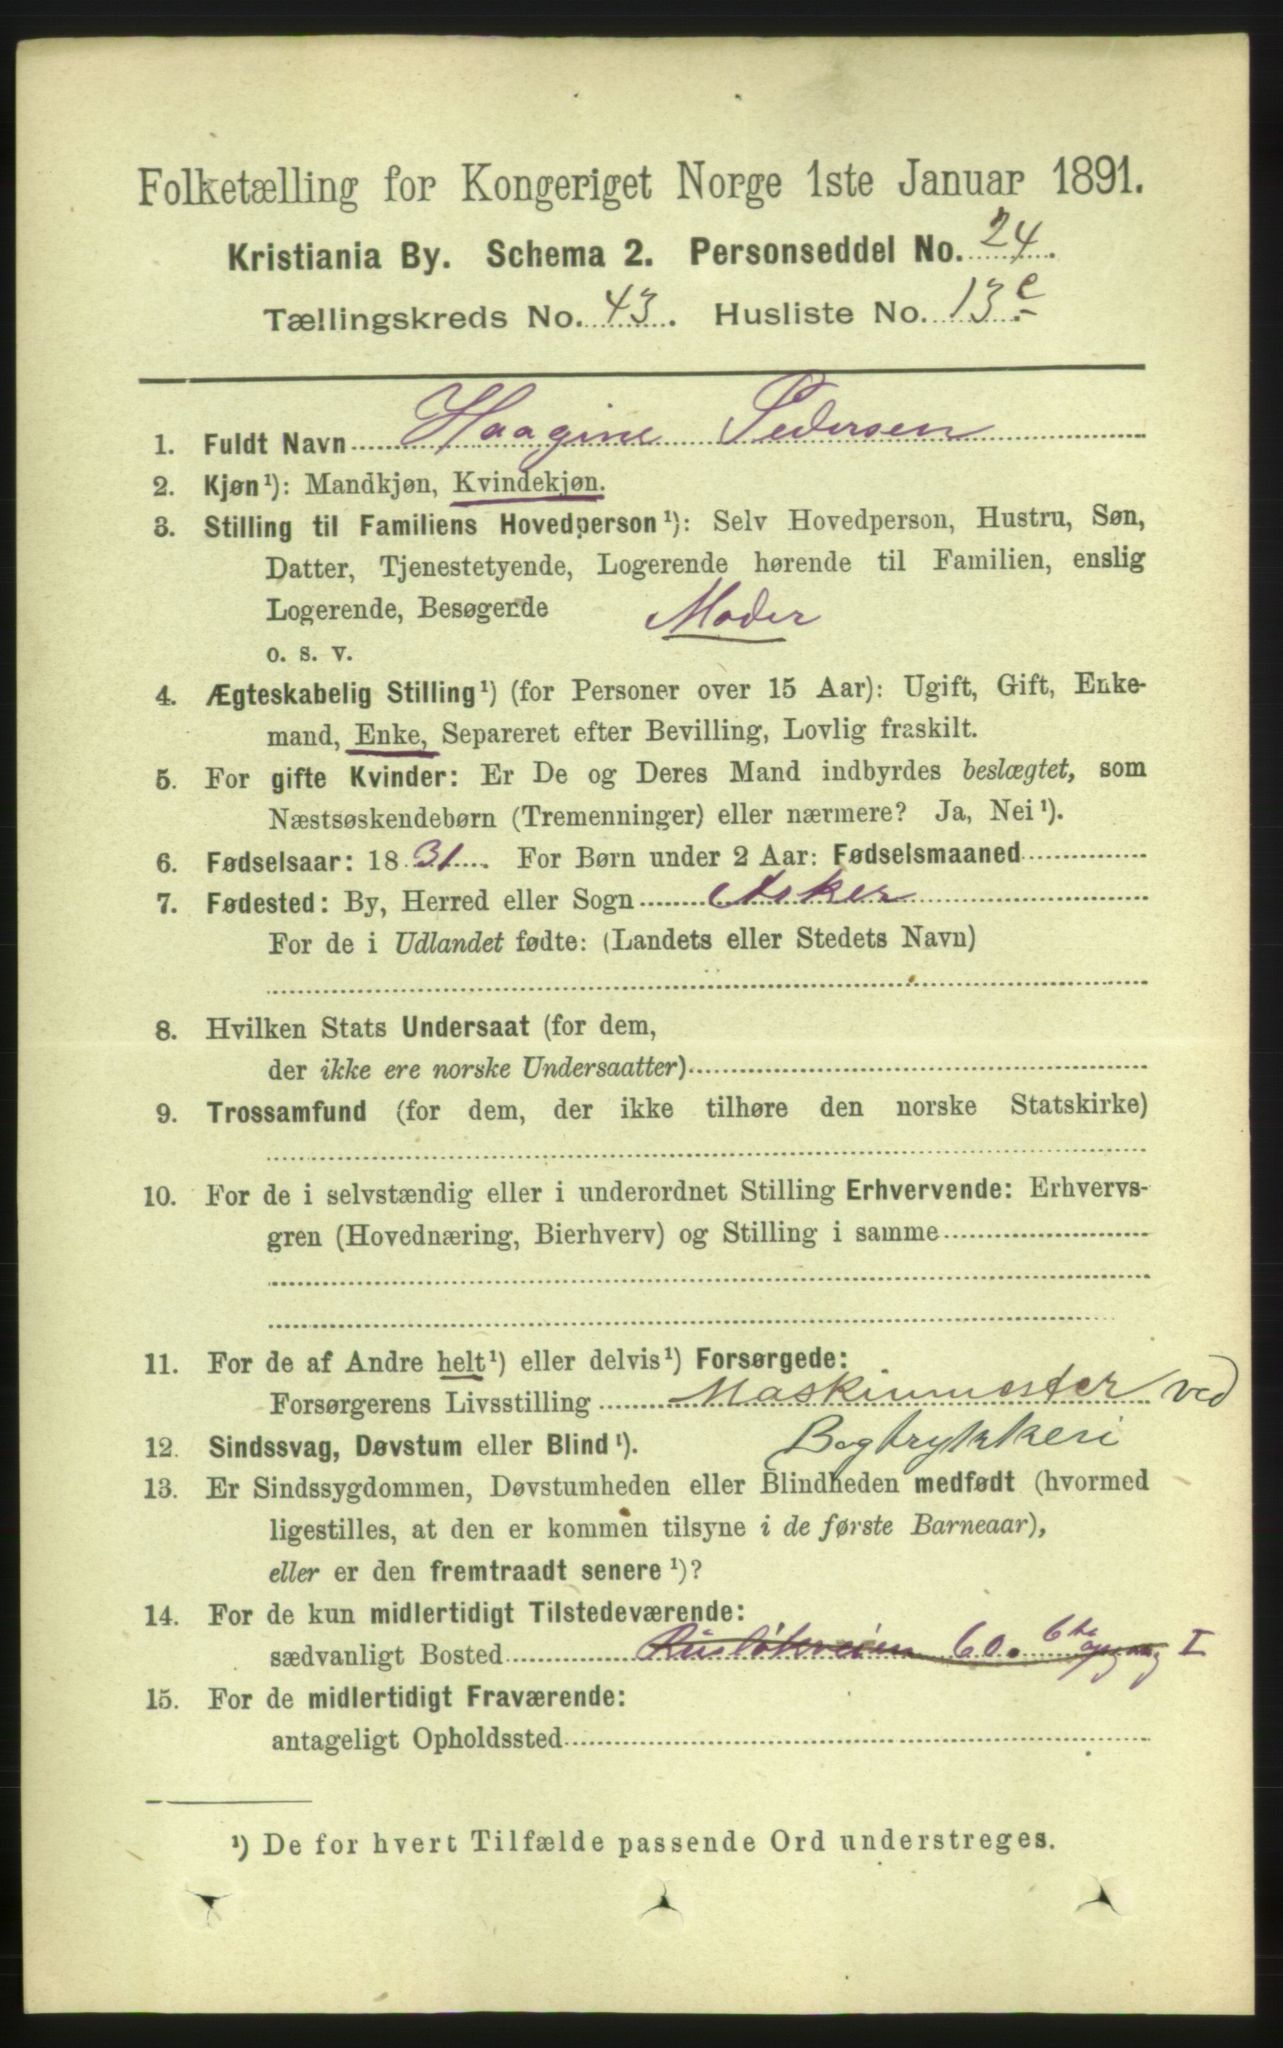 Folketælling for Kongeriget Norge 1ste Januar 1891.
Kristiania By. Schema 2. Personseddel No. 24.
Tællingskreds No. 43. Husliste No. 13 c
1. Fuldt Navn Haagine Pedersen
2. Kjøn¹): Mandkjøn, Kvindekjøn.
3. Stilling til Familiens Hovedperson¹): Selv Hovedperson, Hustru, Søn,
Datter, Tjenestetyende, Logerende hørende til Familien, enslig
Logerende, Besøgende Moder
o. s. v.
4. Ægteskabelig Stilling¹) (for Personer over 15 Aar): Ugift, Gift, Enke-
mand, Enke, Separeret efter Bevilling, Lovlig fraskilt.
5. For gifte Kvinder: Er De og Deres Mand indbyrdes beslægtet, som
Næstsøskendebørn (Tremenninger) eller nærmere? Ja, Nei¹).
6. Fødselsaar: 1831. For Børn under 2 Aar: Fødselsmaaned
7. Fødested: By, Herred eller Sogn Asker
For de i Udlandet fødte: (Landets eller Stedets Navn)
8. Hvilken Stats Undersaat (for dem,
der ikke ere norske Undersaatter)
9. Trossamfund (for dem, der ikke tilhøre den norske Statskirke)
10. For de i selvstændig eller i underordnet Stilling Erhvervende: Erhvervs-
gren (Hovednæring, Bierhverv) og Stilling i samme
11. For de af Andre helt¹) eller delvis¹) Forsørgede:
Forsørgerens Livsstilling Maskinmester ved
12. Sindssvag, Døvstum eller Blind¹). Bogtrykkeri
13. Er Sindssygdommen, Døvstumheden eller Blindheden medfødt (hvormed
ligestilles, at den er kommen tilsyne i de første Barneaar),
eller er den fremtraadt senere¹)?
14. For de kun midlertidigt Tilstedeværende:
sædvanligt Bosted Ruseløkveien 60. 6te opgang I
15. For de midlertidigt Fraværende:
antageligt Opholdssted
¹) De for hvert Tilfælde passende Ord understreges.